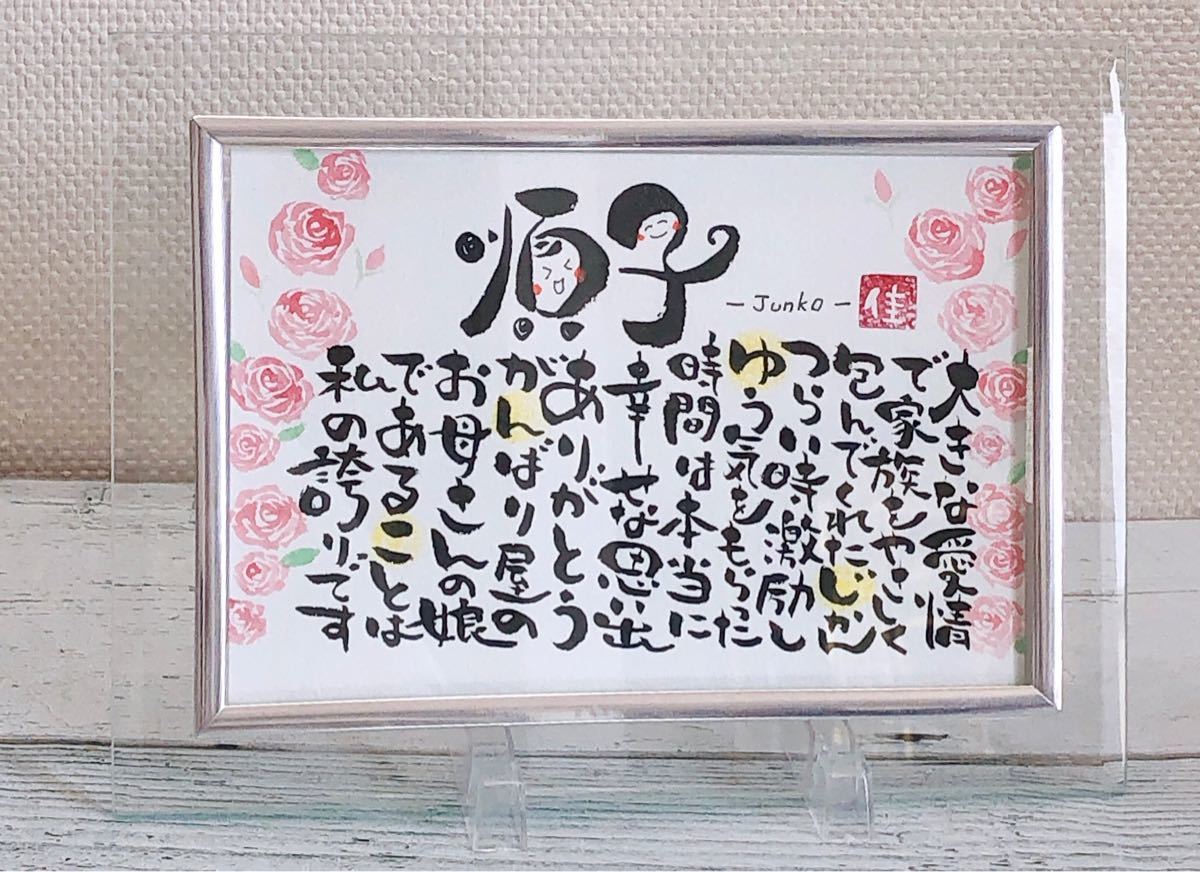 順子
- Junko -
佳
大きな愛情
で家族をやさしく
包んでくれたじかん
つらい時激励し
ゆう気をもらった
時間は本当に
幸せな思出
ありがとう
がんばり屋の
お母さんの娘
であることは
私の誇りです